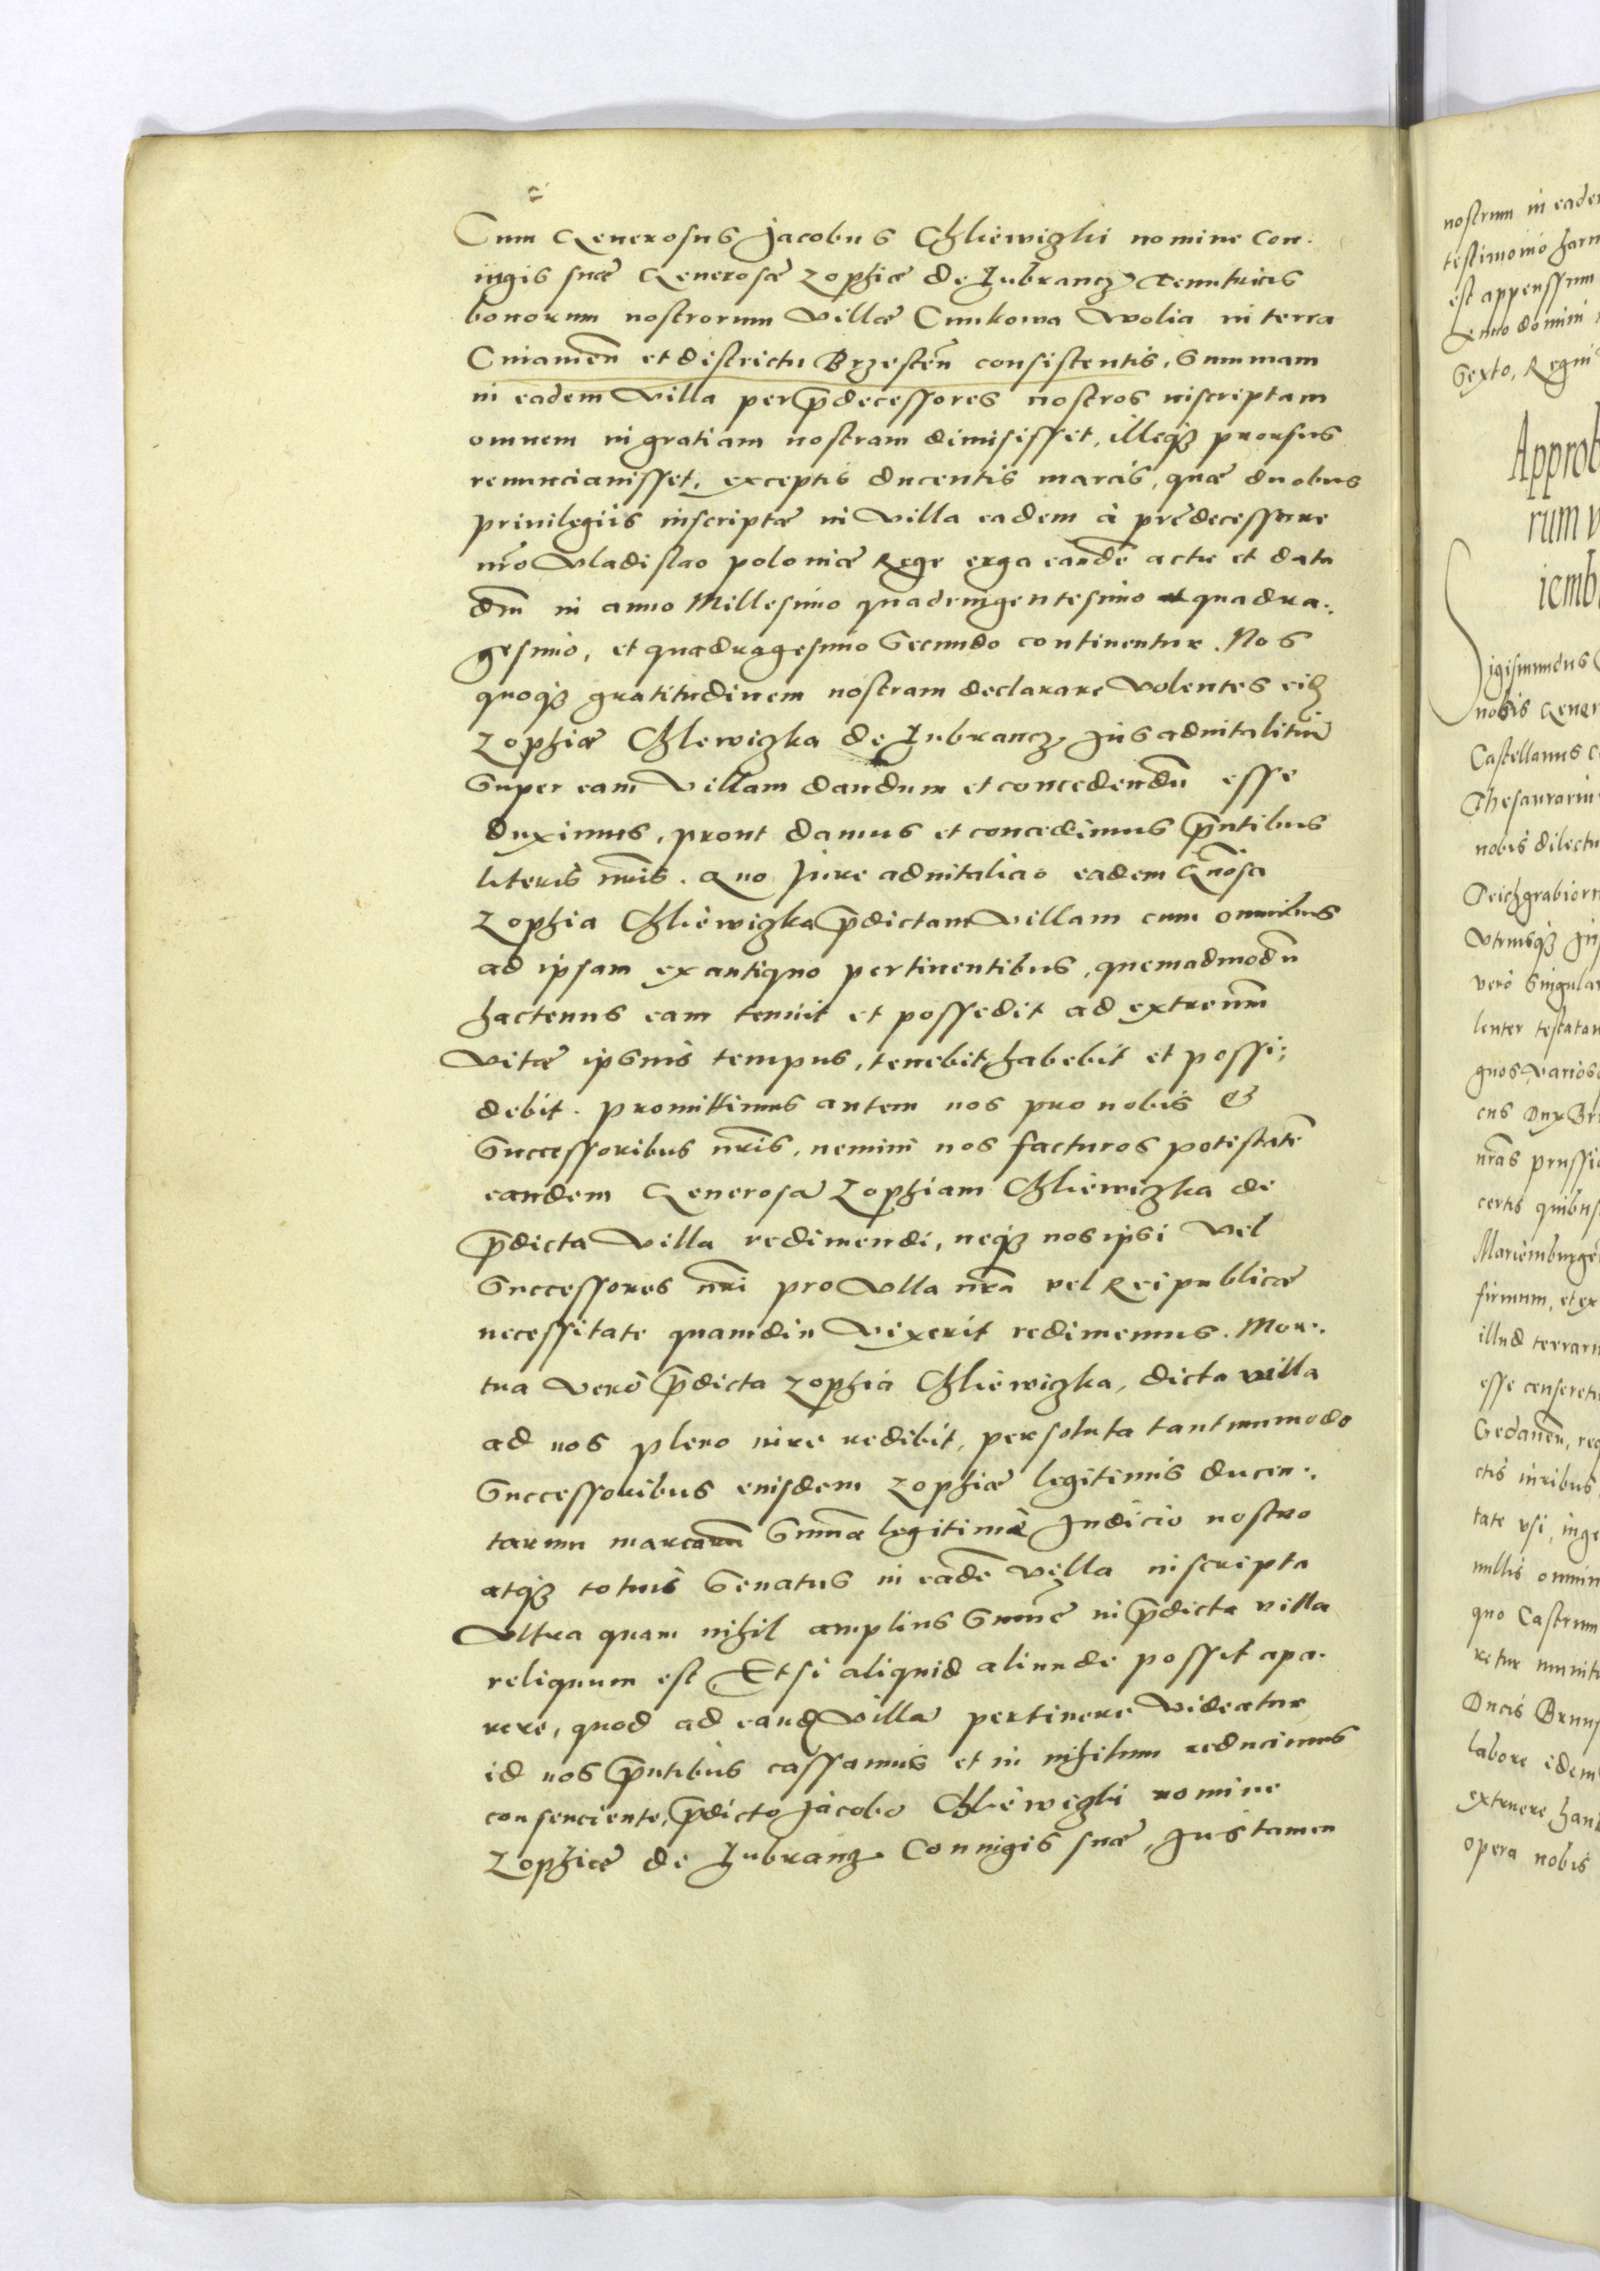 Cum Generosus Jacobus Chlewiczki nomine Con:
iugis suæ Generosæ Zophiæ de Lubrancz Tenutricis
bonorum nostrorum Villæ Cunkowa Wolia in terra
Cuiamen̄ et districtu Brzesten̄ consistentis, Summam
in eadem Villa per p̄decessores nostros inscriptam
omnem in gratiam nostram dimisisset, illeq₃ prorsus
renunciauisset, exceptis ducentis marcis, quæ duobus
priuilegiis inscriptæ in Villa eadem à predecessore
nr̄o Vladislao poloniæ Rege erga eandē actu et data
dm̄ in anno Millesimo quadringentesimo quadra:
gesimo, et quadragesimo Secundo continentur. Nos
quoq₃ gratitudinem nostram declarare Volentes eid₃
Zophiæ Chlewiczka de Lubrancz, Jus aduitalitiū
Super eam Villam dandum et concedendū esse
duximus, prout damus et concedimus p̄ntibus
literis nr̄is. Quo Jure aduitalicio eadem Gn̄osa
Zophia Chlewiczka p̄dictam Villam cum omnibus
ad ipsam ex antiquo pertinentibus, quemadmodū
hactenus eam tenuit et possedit ad extremū
Vitæ ipsius tempus, tenebit habebit et possi:
debit. promittimus autem nos pro nobis &
Successoribus nr̄is, nemini nos facturos potestatē
eandem Generosā Zophiam Chlewiczka de
p̄dicta Villa redimendi, neq₃ nos ipsi Vel
Successores nr̄i pro Vlla nr̄a vel Reipublicæ
necessitate quamdiu Vixerit redimemus. Mor:
tua Verò p̄dicta Zophia Chlewiczka, dicta villa
ad nos pleno iure redibit, persoluta tantummodo
Successoribus eiusdem Zophiæ legitimis ducen:
tarum marcarum Summa legitimè Judicio nostro
atq₃ totius Senatus in eadē Villa inscripta
Vltra quam nihil amplius Summæ in p̄dicta villa
reliquum est. Et si aliquid aliunde posset apa:
rere, quod ad eand Villā pertinere Videatur
id nos p̄ntibus cassamus et in nihilum reducimus
consenciente p̄dicto Jacobo Chlewiczki nomine
Zophiæ de Lubrancz Coniugis suæ, Jus tamen
nostrum in eadem
testimonio harum
est appenssum
Anno domini
Sexto, Regni
Approb
rum v
iemb
Sigismundus
nobis Gener
Castellanus
Thesaurarius
nobis dilectu
Vtriusq₃
verò Singular
lenter testatam
cus Dux Br
nr̄as prussi
certis quibus
Mariemburgen
firmum, et ex
illud terrar
esse censeret
Gedanen̄, re
ctis iuribus
tate vsi, inge
nullis omnin
quo Castrum
retur munit
Ducis Bruns
labore idem
extruere hau
opera nobis